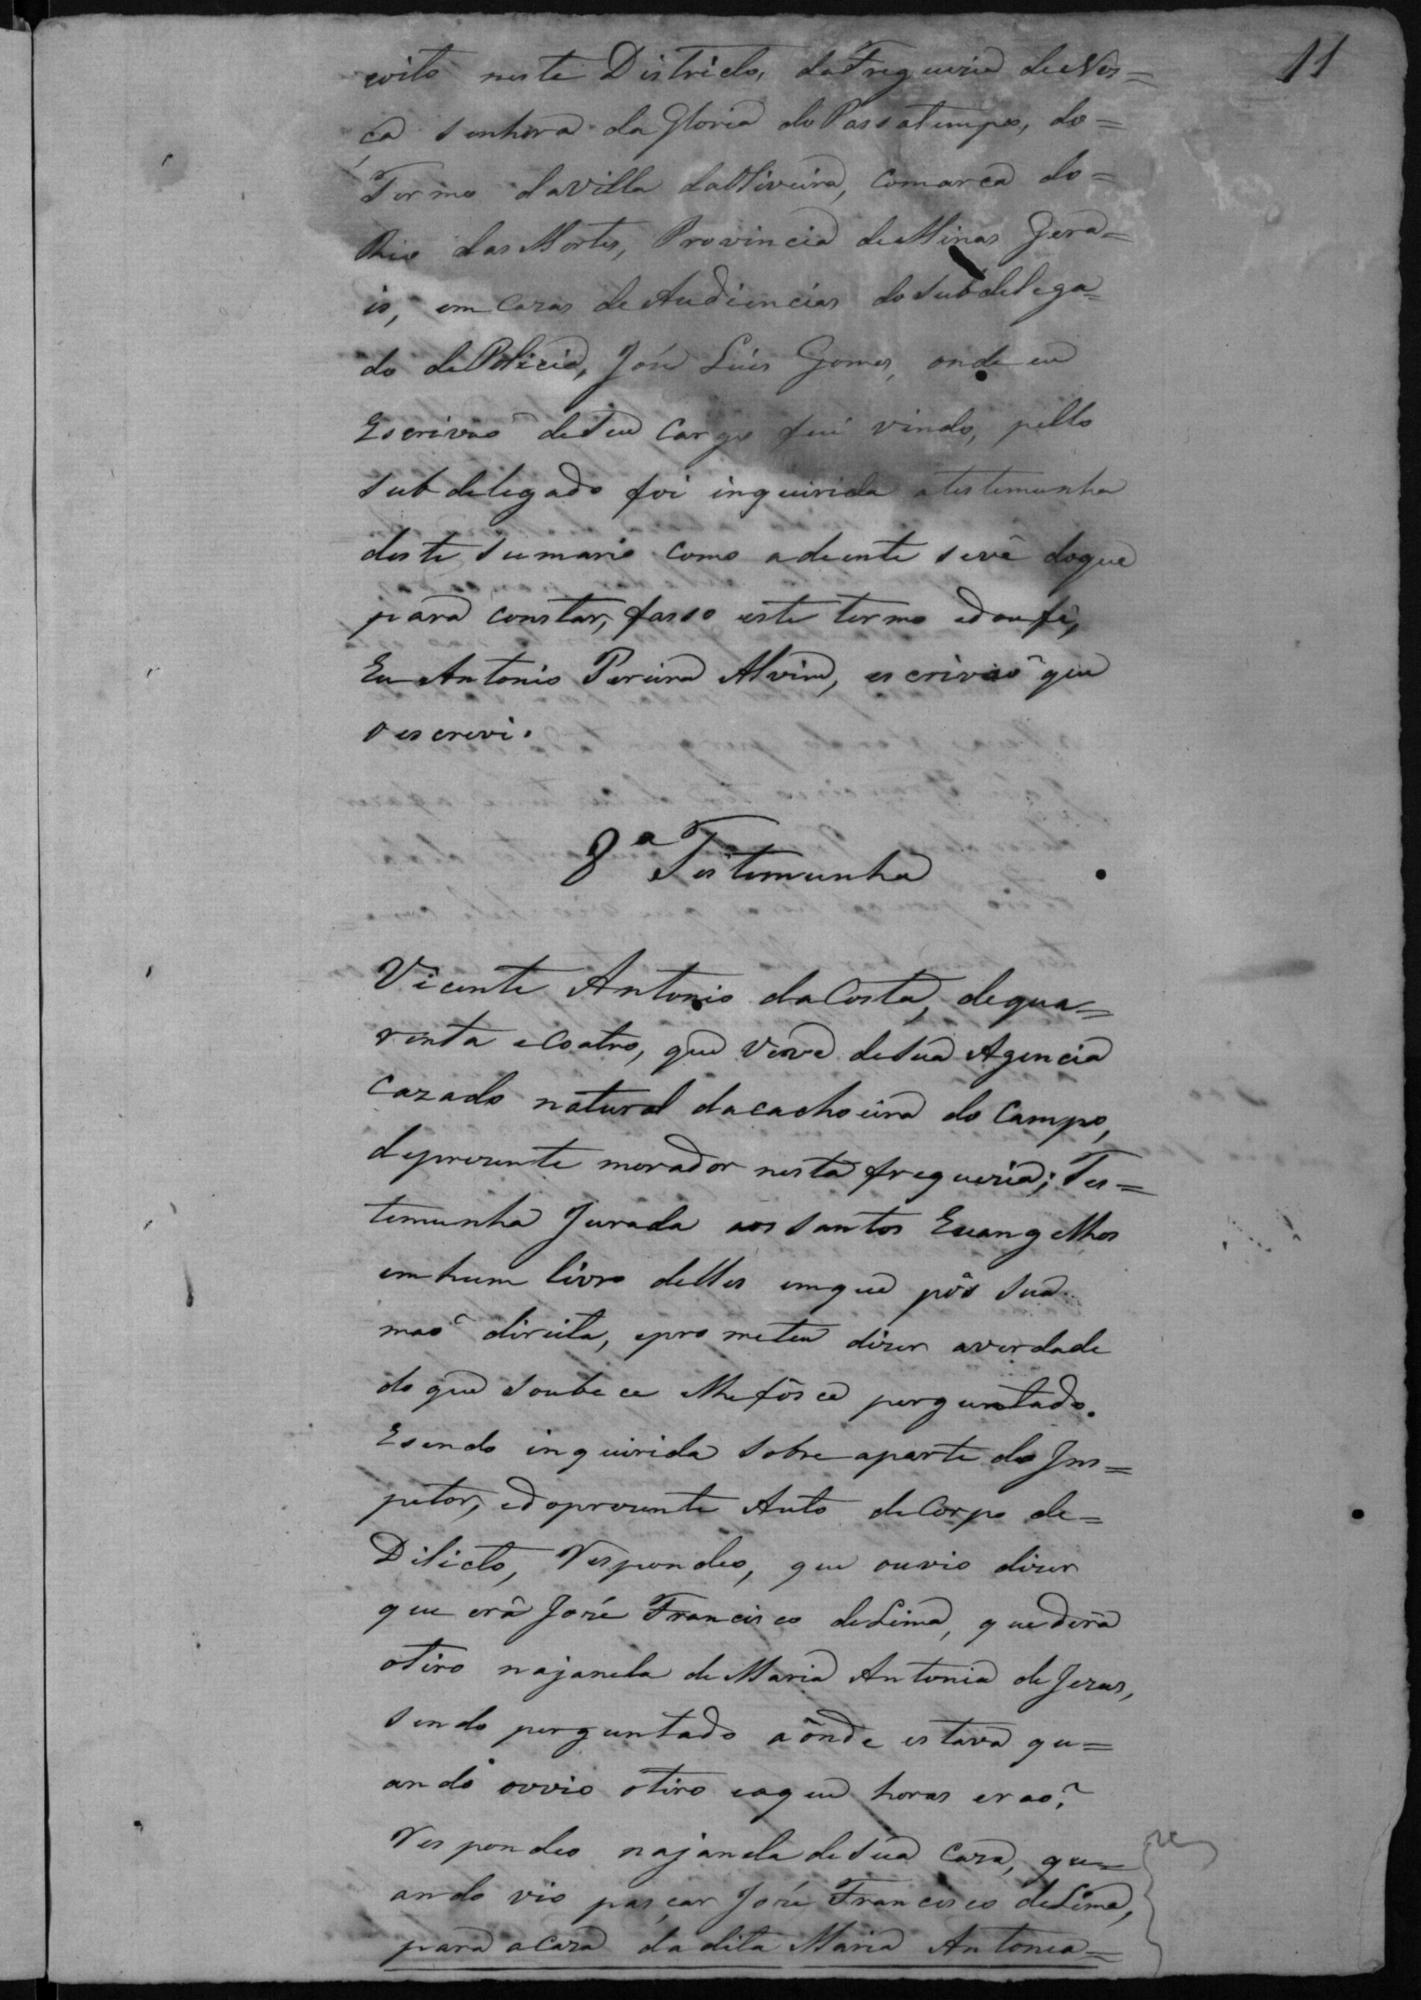 11
coito neste Districto, da Freguezia de Nos=
ça Senhora da Gloria do Passatempo, do=
Termo da Villa da Oliveira, Comarca do=
Rio das Mortes, Provincia de Minas Gera=
is, em Cazas de Audiencias do Subdelega=
do de Policia, José Luis Gomes, onde eu
Escrivaõ de Seu Cargo fui vindo, pello
Subdelegado foi inquirida a testemunha
deste Sumario como adeente se vê do que
para constar, fasso este termo e dou fé,
Eu Antonio Pereira Alvim, escrivaõ que
o escrevi.
8ª Testemunha
Vicente Antonio da Costa, de qua=
renta e coatro, que vive de Sua Agencia
Cazado natural da cachoeira do Campo,
de prezente morador nesta freguezia; Tes=
temunha Jurada aos Santos Evangelhos
em hum livro delles em que pôs Sua
maõ direita, e prometeu dizer a verdade
do que Soubece e lhe fôsce perguntado.
E Sendo inquirida Sobre a parte do Ins=
petor, e do prezente Auto de Corpo de=
Dilicto, Respondeo, que ouvio dizer
que erâ José Francisco de Lima, que dera
o tiro na janela de Maria Antonia de Jezus,
Sendo perguntado aônde estava qu=
ando ouvio o tiro e a que horas eraõ?
Respondeo na janela de Sua Caza, qu=
ando vio pasçar José Francisco de Lima,
para a Caza da dita Maria Antonia=